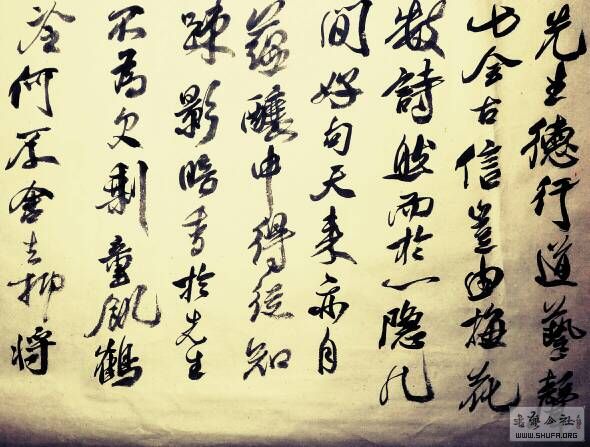 先生德行道藝靜
今古信豈由梅花
數詩然而於一隱几
間好句天來亦自
醖釀中得從知
疎影暗香於先生
不為欠剩童飢鶴
何會去抑將
書藝公社
WWW.SHUFA.ORG